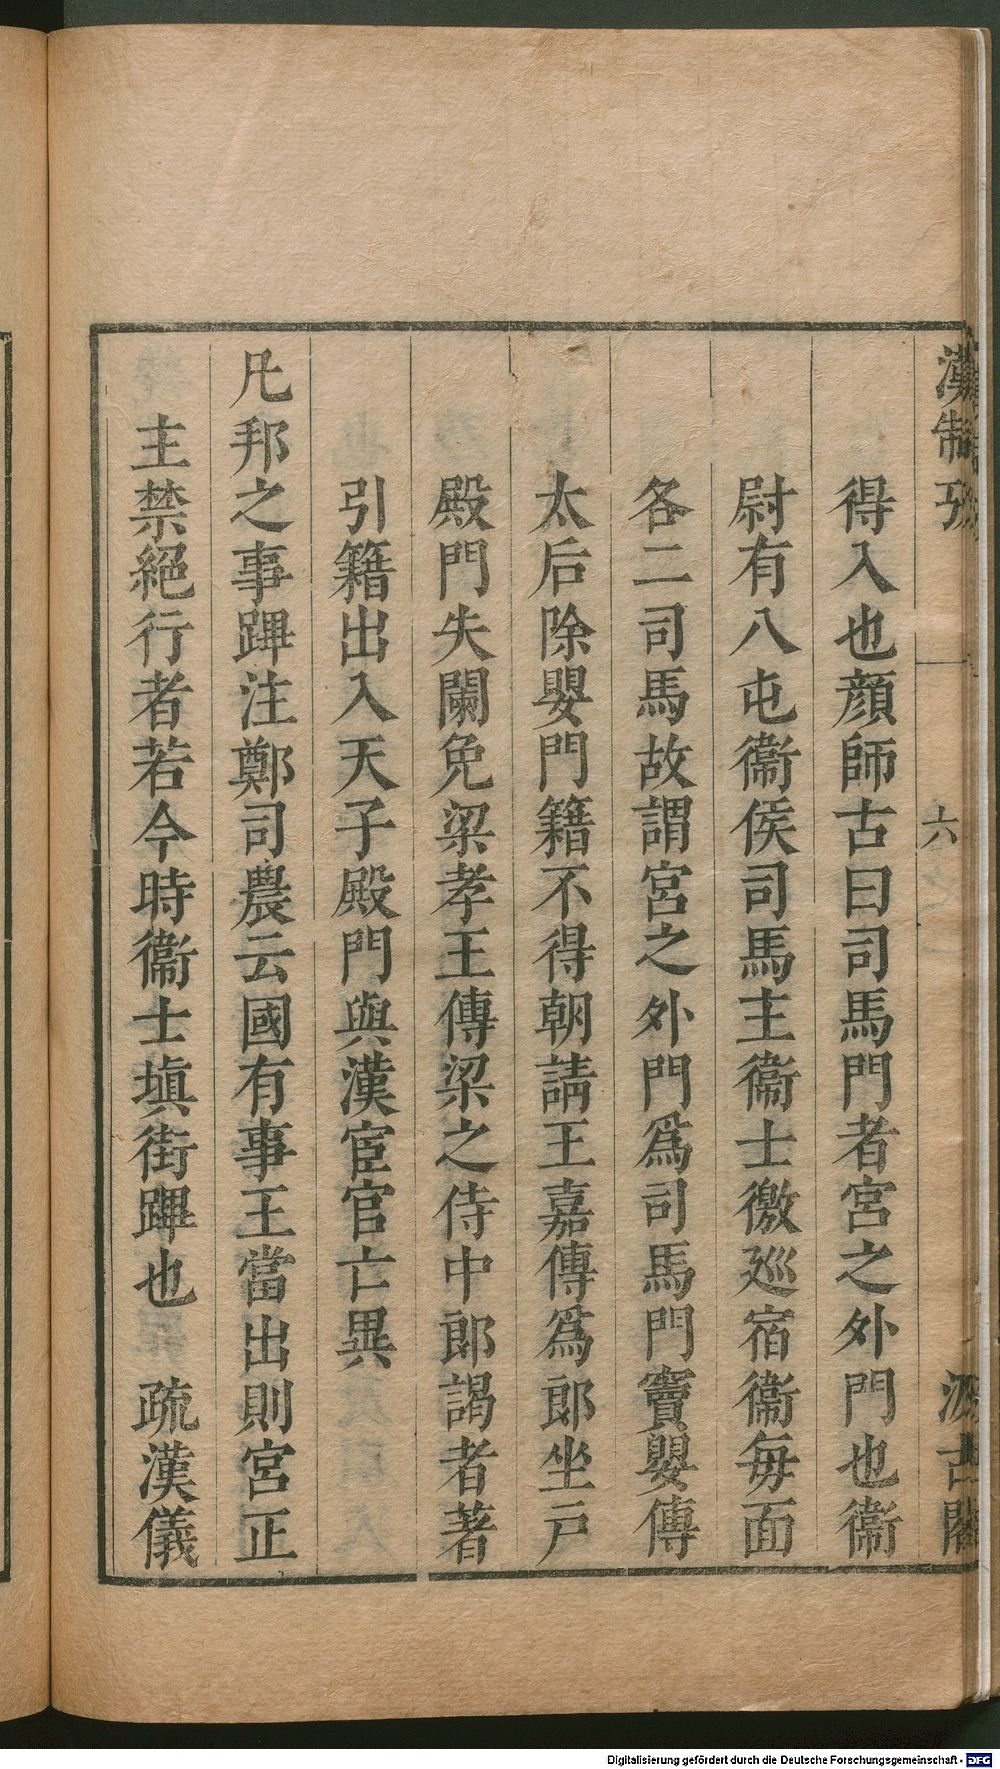 漢制攷
六
汲古閣
得入也顔師古曰司馬門者宮之外門也衞
尉有八屯衞侯司馬主衞士徼廵宿衞每面
各二司馬故謂宮之外門爲司馬門竇嬰傳
太后除嬰門籍不得朝請王嘉傳爲郞坐戸
殿門失闌免梁孝王傳梁之侍中郞謁者著
引籍出入天子殿門與漢宦官亡異
凡邦之事蹕注鄭司農云國有事王當出則宮正
主禁絕行者若今時衞士塡街蹕也　疏漢儀
Digitalisierung gefördert durch die Deutsche Forschungsgemeinschaft - DFG